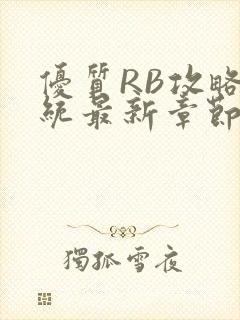 優質RB攻略
統最新章節
獨孤雪夜